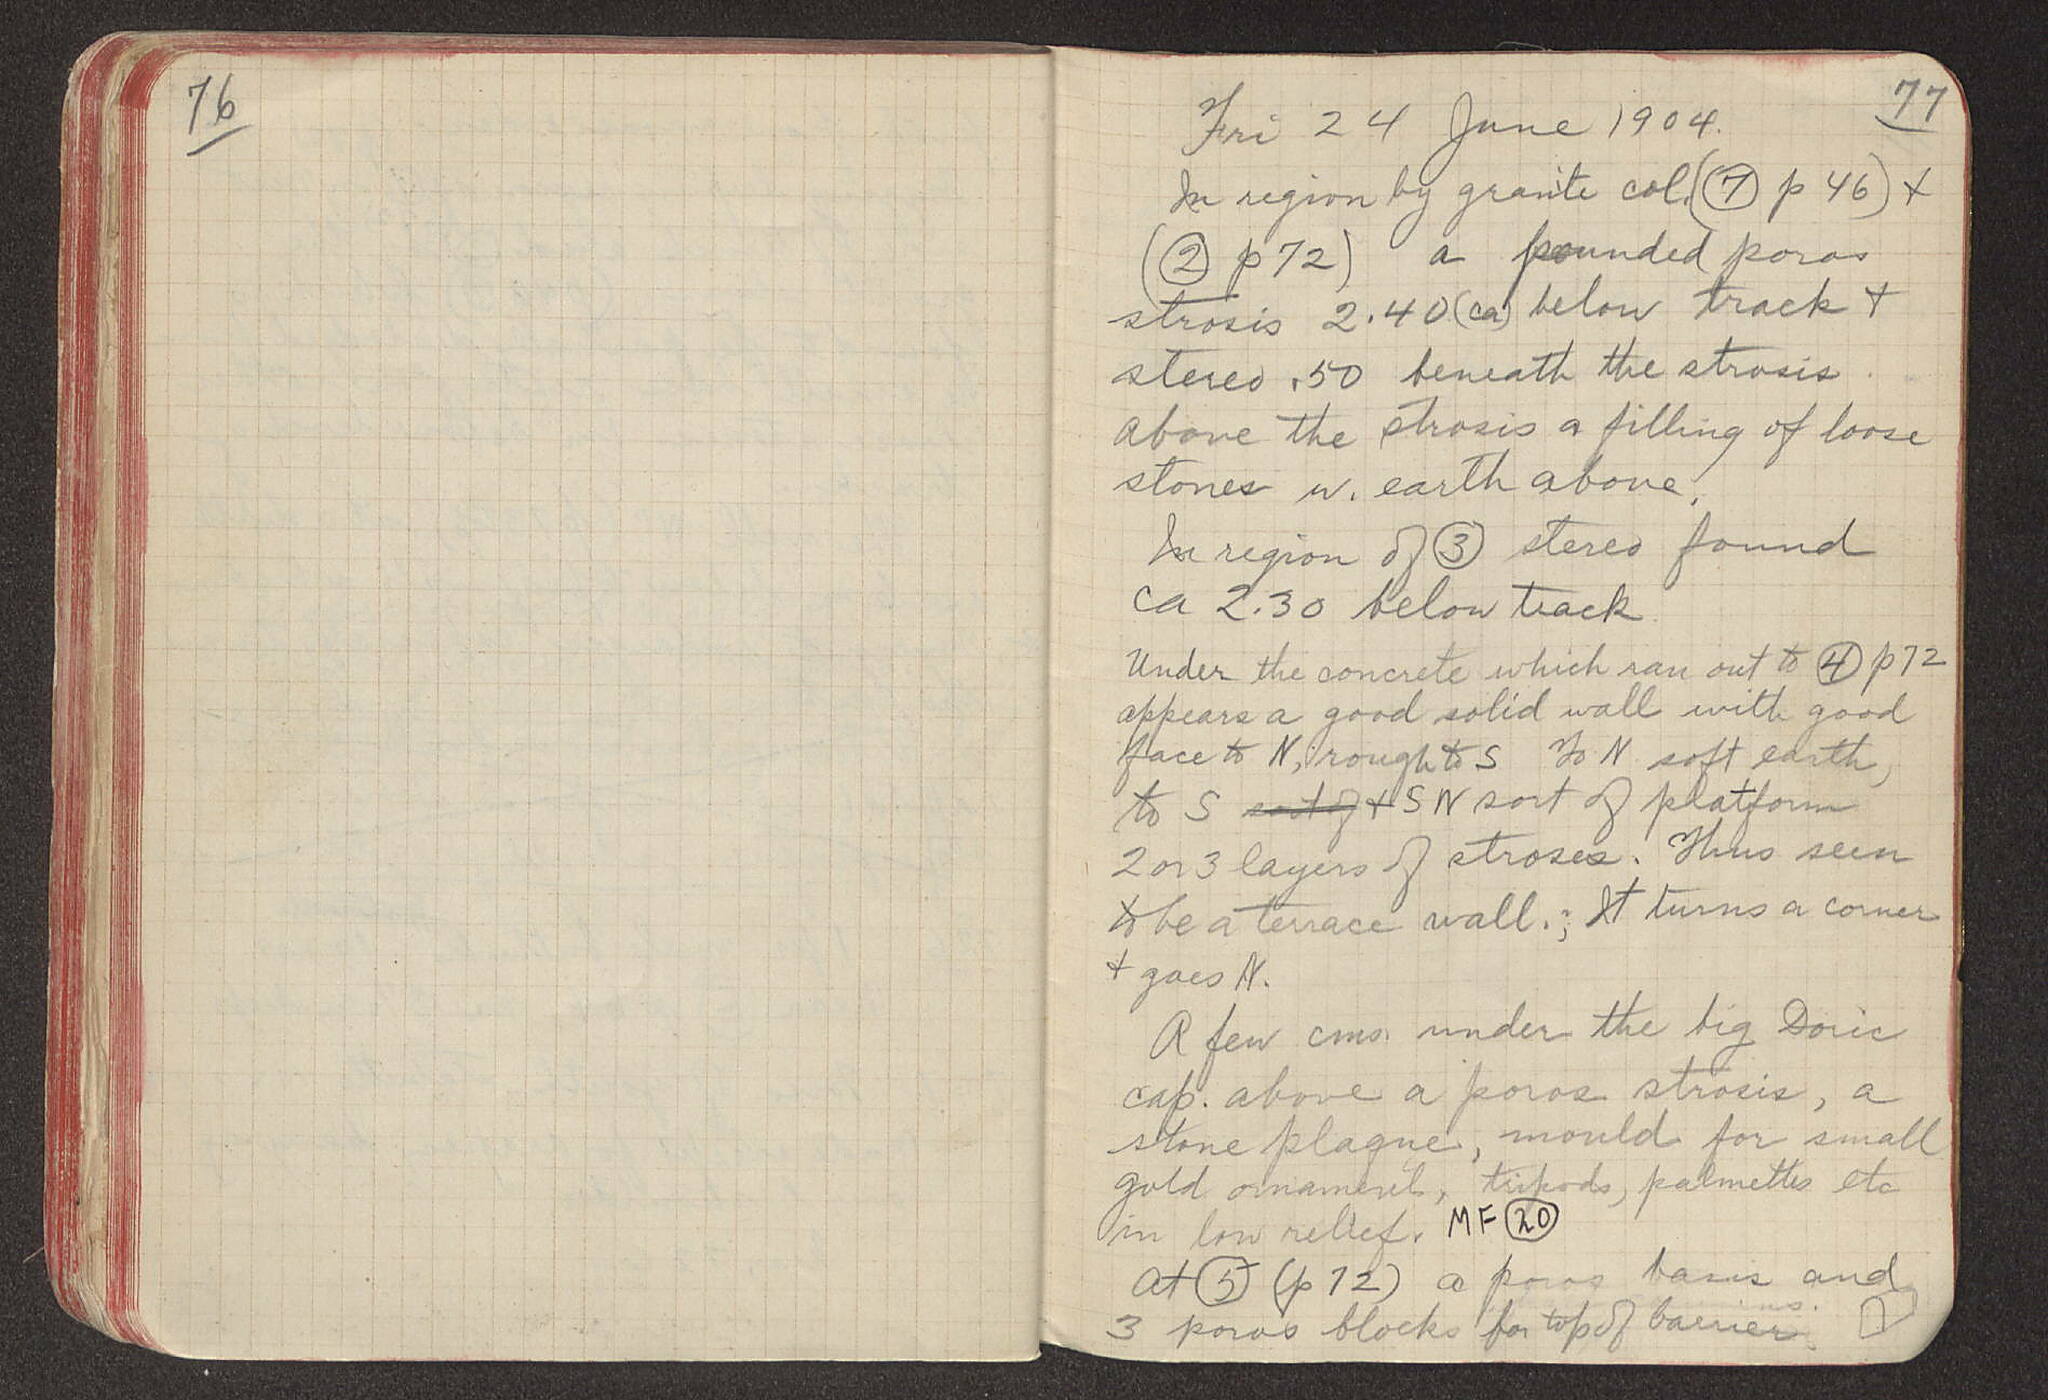 76
77
Fri 24 June 1904.
In region by granite col. (⑦ p 46) +
(② p 72) a pounded poros
strosis 2.40 (ca) below track +
stereo .50 beneath the strosis
above the strosis a filling of loose
stones w. earth above.
In region of ③ stereo found
ca 2.30 below track
Under the concrete which ran out to ④ p 72
appears a good solid wall with good
face to N, rough to S To N soft earth,
to S sort of + S N sort of platform
2 or 3 layers of stroses. Thus seen
to be a terrace wall.; It turns a corner
+ goes N.
A few cms. under the big Doric
cap. above a poros strosis, a
stone plaque, mould for small
gold ornament, tripods, palmettes etc
in low relief. MF ⑳
At ⑤ (p 72) a poros basis and
3 poros blocks for top of barrier